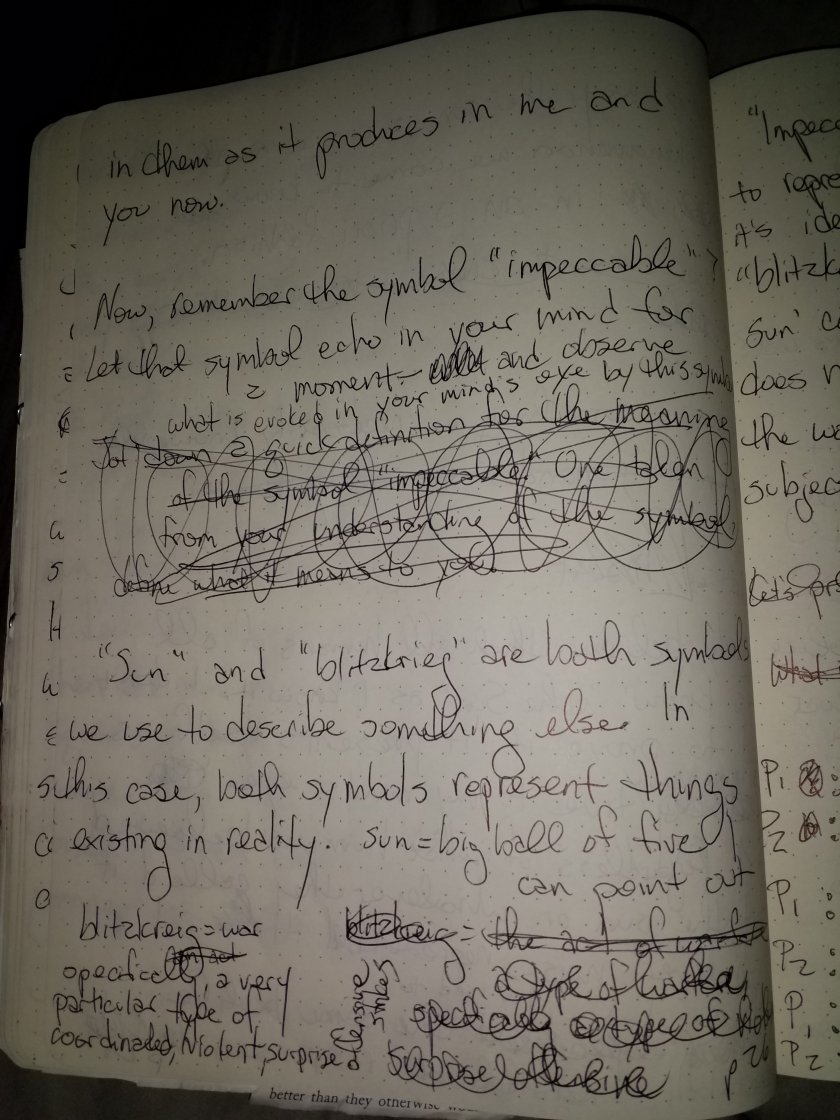 in them as it produces in me and
you now.
Now, remember the symbol "impeccable"?
Let that symbol echo in your mind for
a moment and observe
what is evoked in your mind's eye by this symbol
Jot down a quick definition for the meaning
of the symbol "impeccable." One taken
from your understanding of the symbol,
define what it means to you.
"Sun" and "blitzkrieg" are both symbols
we use to describe something else. In
this case, both symbols represent things
existing in reality. sun = big ball of fire I
can point out
blitzkreig = war
specifically, a very
particular type of
coordinated, violent, surprise
offensive
strikes
blitzkreig = the act of
a type of
specifically a type of
surprise offensive
better than they otherwise
"Impecc
to repre
it's ide
"blitzk
sun' c
does n
the wo
subjec
Let's pr
What
P1 :
P2 :
P1 :
P2 :
P1 :
P2 :